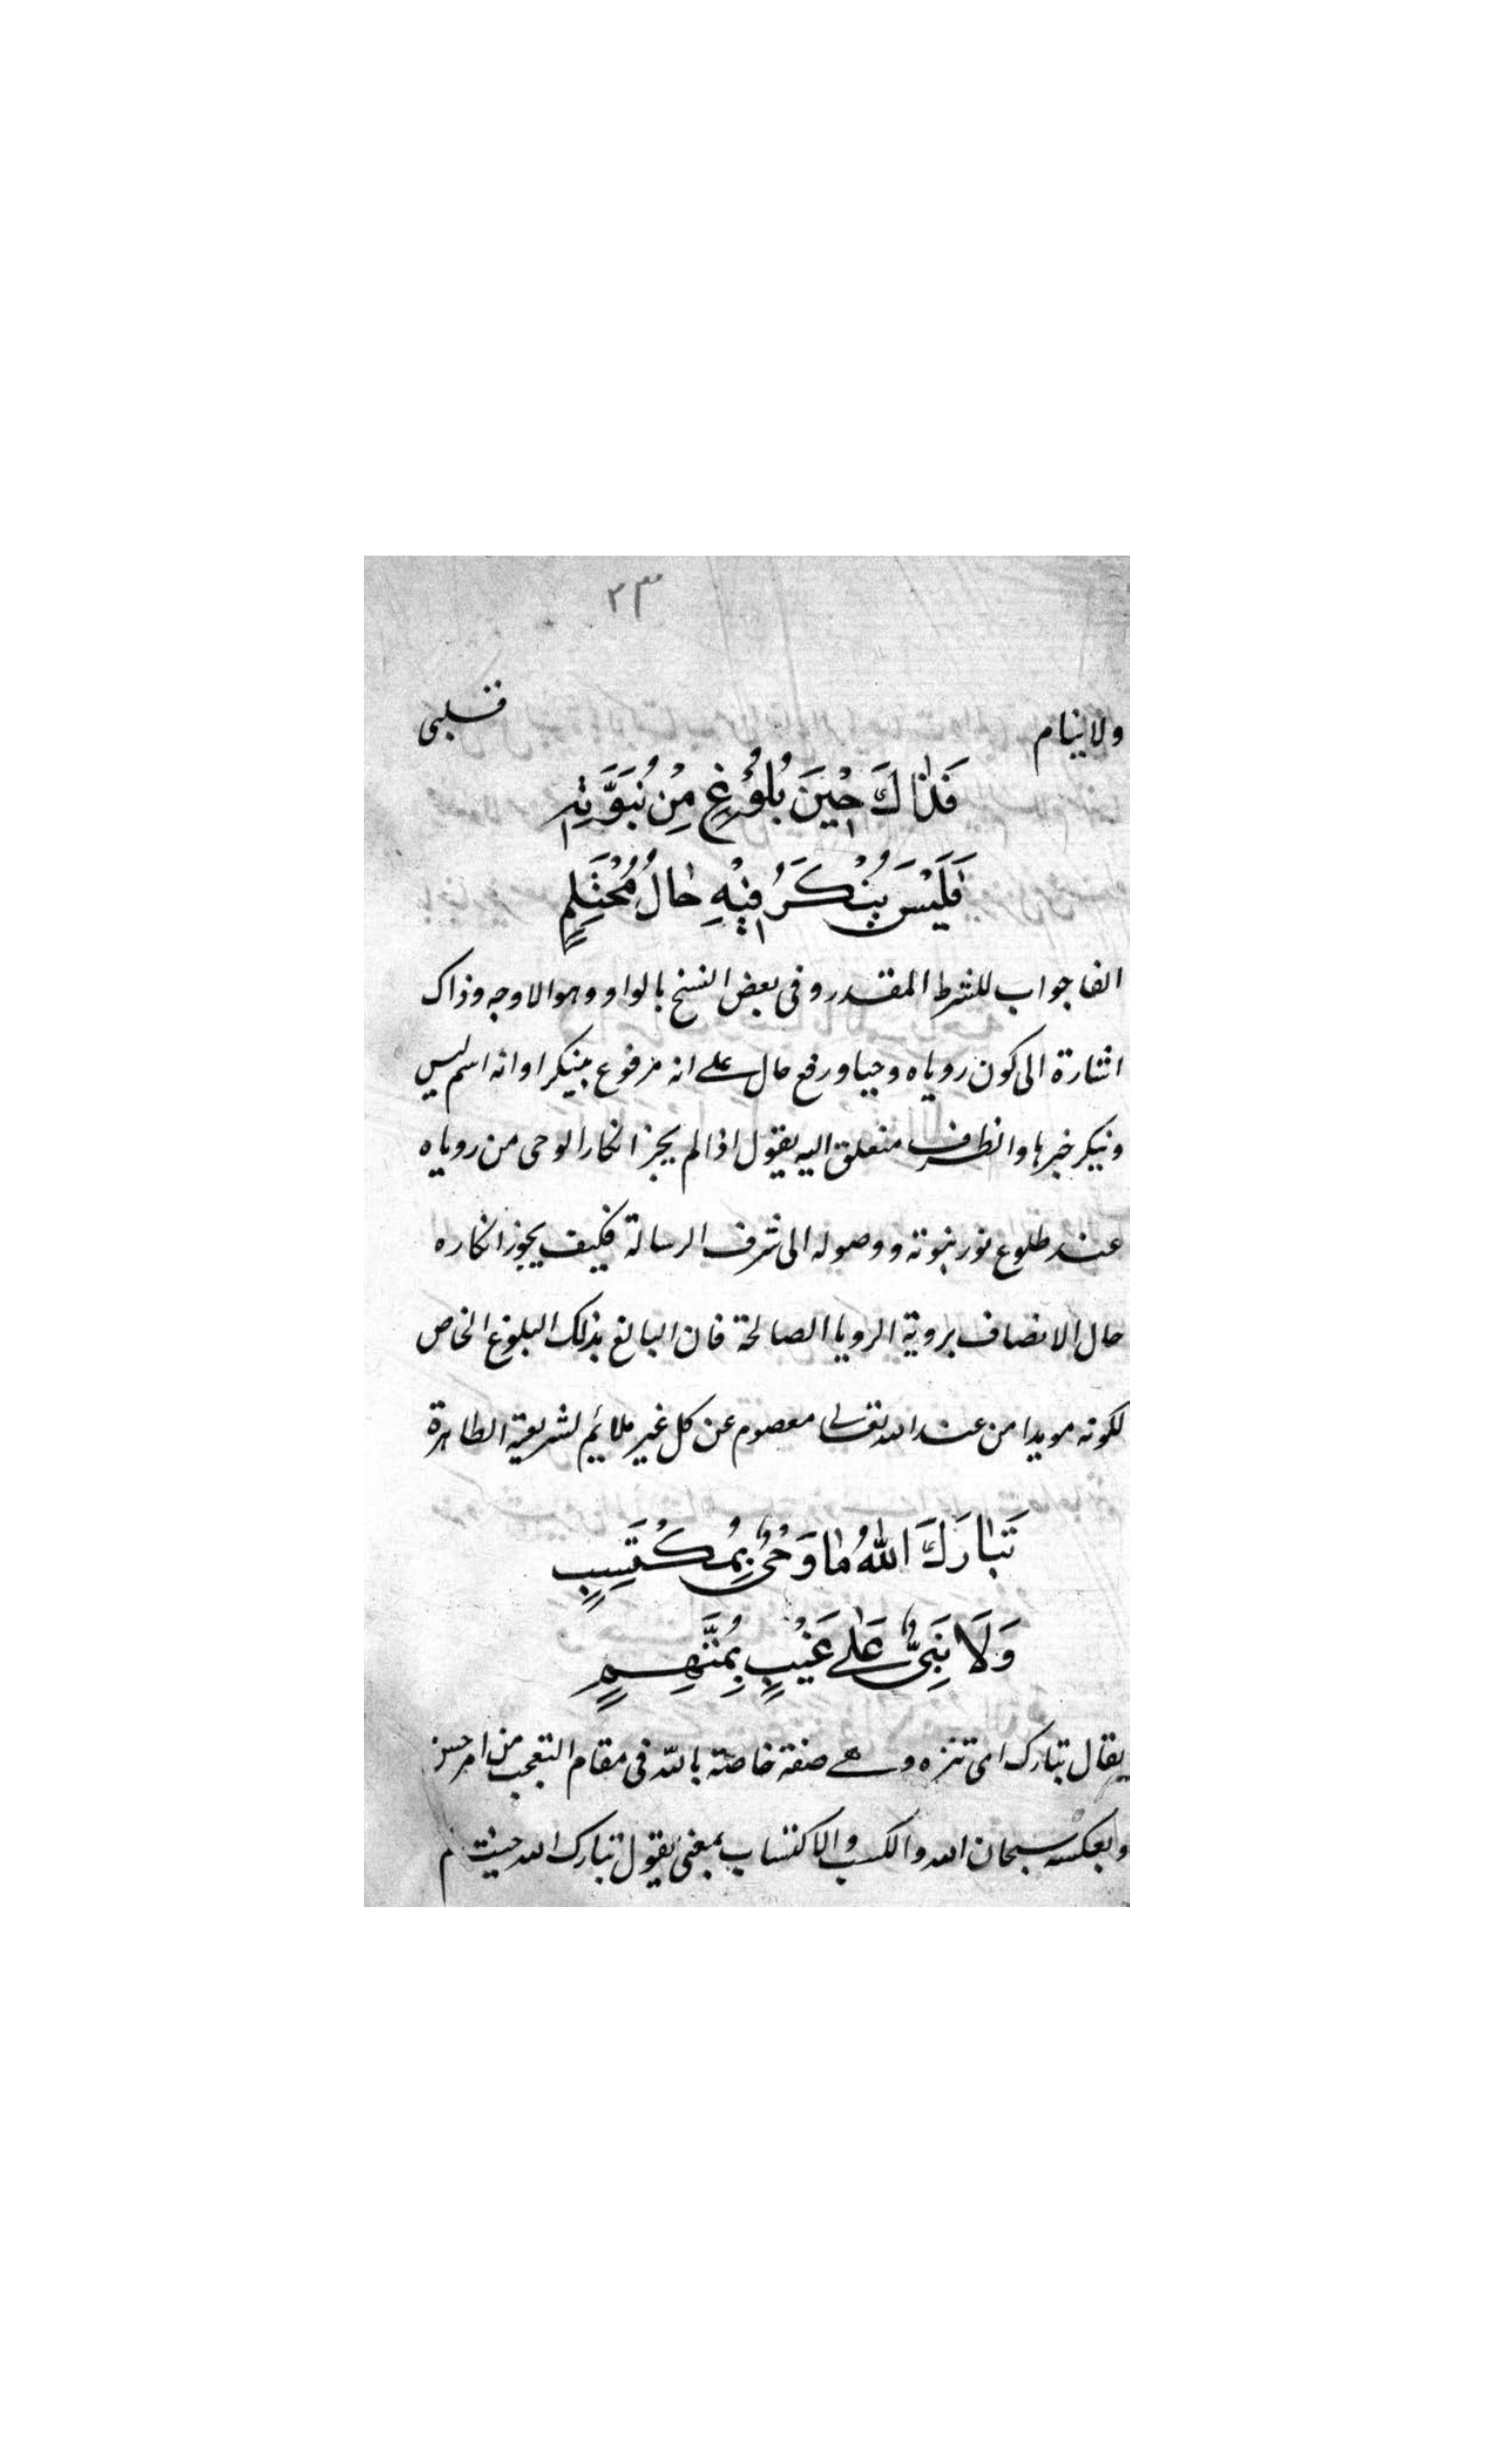 ٣٣
ولا ينام قلبى
فَذَاكَ حِيْنَ بُلُوْغٍ مِنْ نُبُوَّتِهٖ
فَلَيْسَ يُنْكَرُ فِيْهِ حَالُ مُحْتَلِمٍ
الفا جواب للشرط المقدر وفى بعض النسخ بالواو وهو الاوجه وذاك
اشارة الى كون روياه وحيا ورفع حال على انه مرفوع بينكر او انه اسم ليس
وينكر خبرها والظرف متعلق اليه يقول اذا لم يجز انكار الوحى من روياه
عند طلوع نور نبوته ووصوله الى شرف الرسالة فكيف يجوز انكاره
حال الاتصاف بروية الرويا الصالحة فان البالغ بذلك البلوغ الخاص
لكونه مويدا من عند الله تعالى معصوم عن كل غير ملائم لشريعته الطاهرة
تَبَارَكَ اللّٰهُ مَا وَحْىٌ بِمُكْتَسِبٍ
وَلَا نَبِىٌّ عَلٰى غَيْبٍ بِمُتَّهِمٍ
يقال تبارك اى تنزه وهى صفة خاصة بالله فى مقام التعجب من امر حسن
وبعكسه سبحان الله والكسب والاكتساب بمعنى يقول تبارك الله حيث